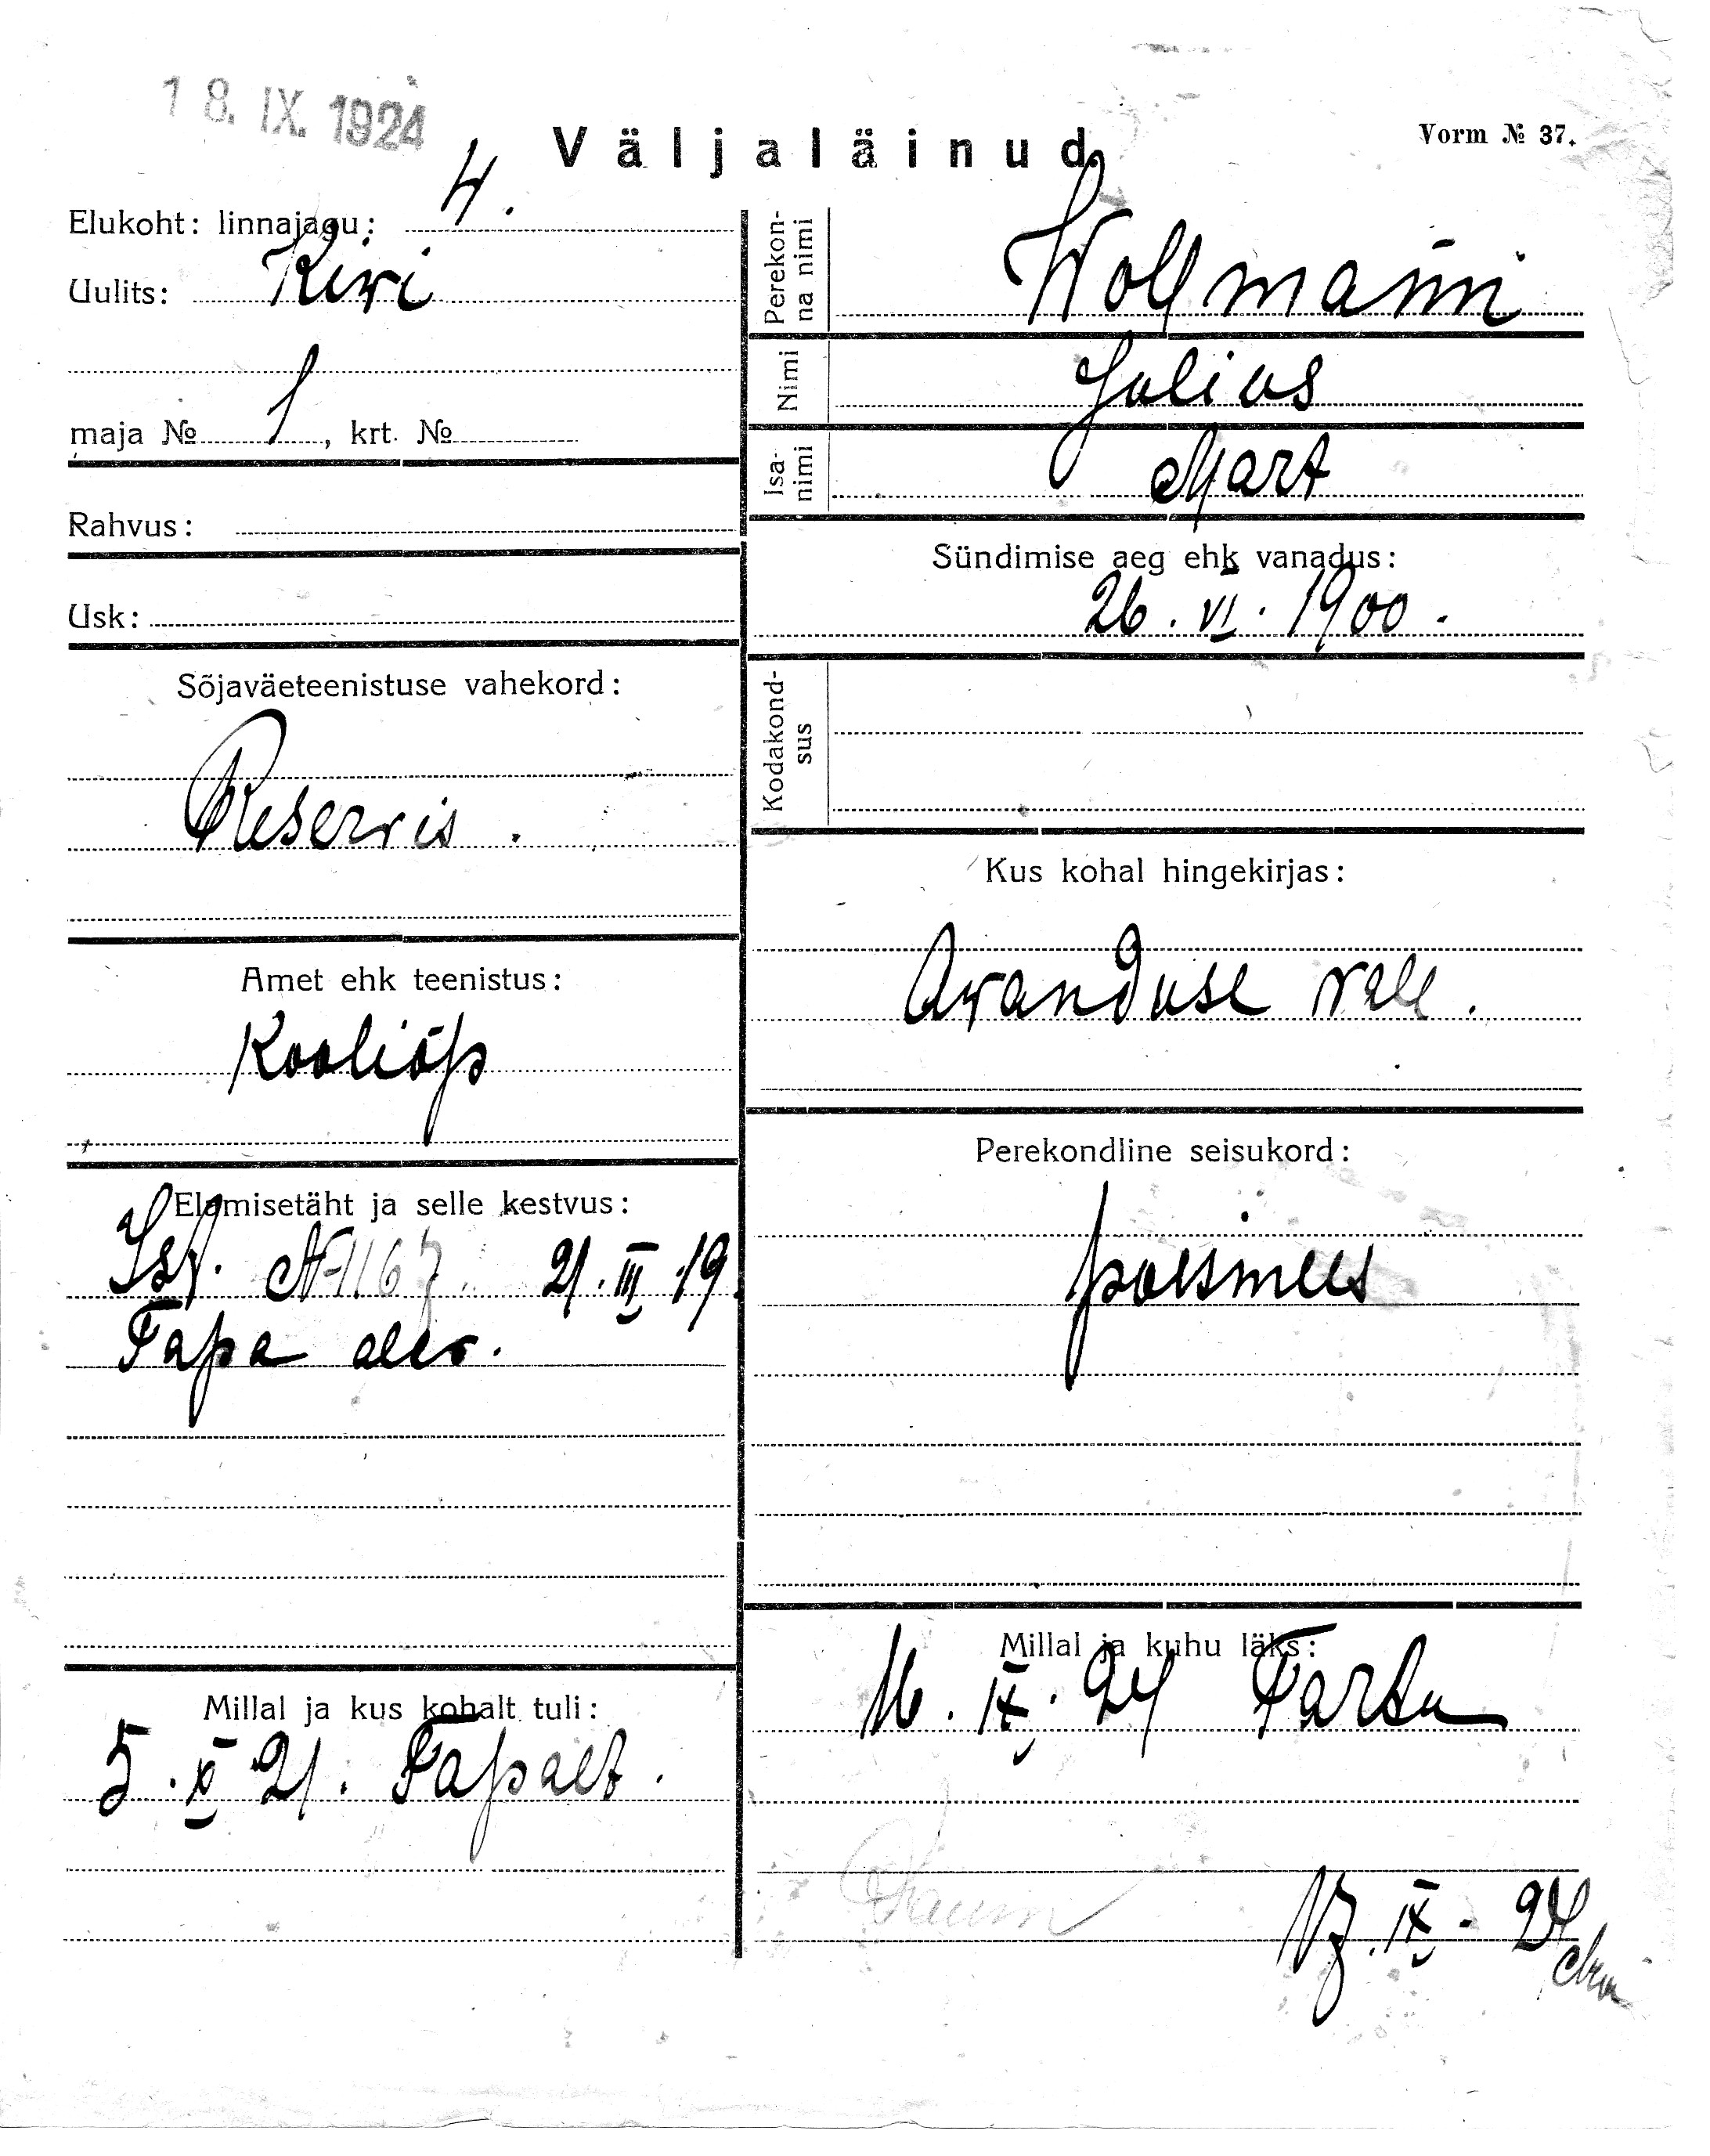 18. IX. 1924
Väljaläinud.
Vorm № 37.
Elukoht: linnajagu: 4.
Uulits: Kiwi
maja № 1, krt. №
Rahvus:
Usk:
Sõjaväeteenistuse vahekord:
Reserwis.
Amet ehk teenistus:
Kooliõp
Elamisetäht ja selle kestvus:
Ist. № 1167 21.III.19
Tapa alev.
Millal ja kus kohalt tuli:
5.X 21. Tapalt.
Perekonna nimi
Wollmann
Nimi
Julius
Isanimi
Mart
Sündimise aeg ehk vanadus:
26.VI.1900.
Kodakondsus
Kus kohal hingekirjas:
Awanduse vall.
Perekondline seisukord:
poissmees
Millal ja kuhu läks:
16.IX.24 Tartu
17.IX.24